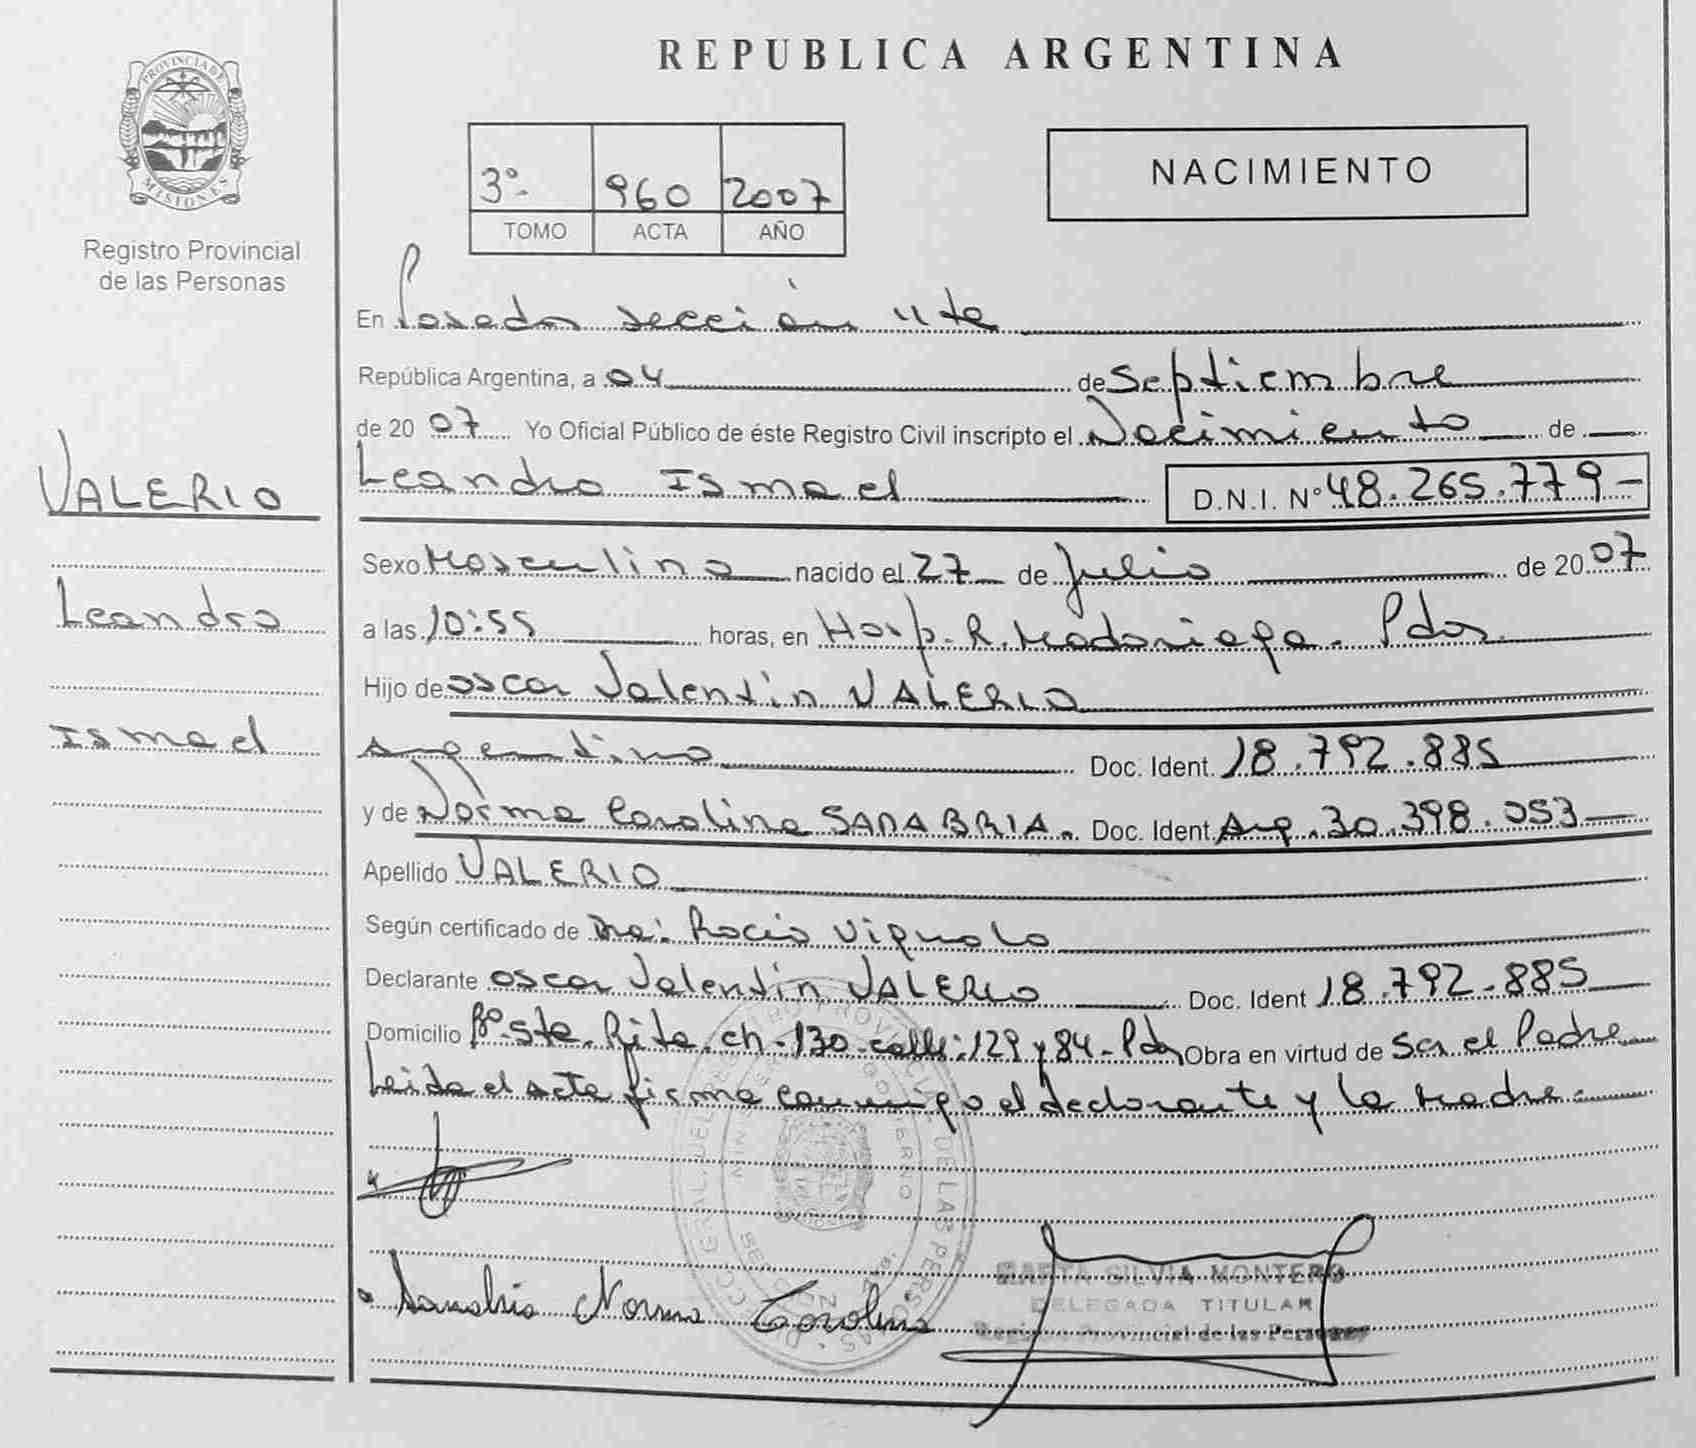 REPUBLICA ARGENTINA
PROVINCIA DE
MISIONES
Registro Provincial
de las Personas
3º- 960 2007
TOMO ACTA AÑO
NACIMIENTO
En Posadas sección 11te
República Argentina, a 04 de Septiembre
de 2007 Yo Oficial Público de éste Registro Civil inscripto el Nacimiento de
Leandro Ismael D.N.I. Nº 48.265.779-
VALERIO
Leandro
Ismael
Sexo Masculino nacido el 27 de Julio de 2007
a las 10:55 horas, en Hosp. R. Madariaga. Pdas.
Hijo de Oscar Valentín VALERIO
Argentino Doc. Ident. 18.792.885
y de Norma Carolina SANABRIA. Doc. Ident Arg. 30.398.053
Apellido VALERIO
Según certificado de Dra: Rocio Vignolo
Declarante Oscar Valentín VALERIO Doc. Ident 18.792.885
Domicilio Bº. Sta. Rita. ch. 130. calle: 129 y 84- Pdas Obra en virtud de Ser el Padre
Leida el acta firma conmigo el declarante y la Madre.
Sanabria Norma Carolina
MARTA SILVIA MONTERO
DELEGADA TITULAR
Registro Provincial de las Personas